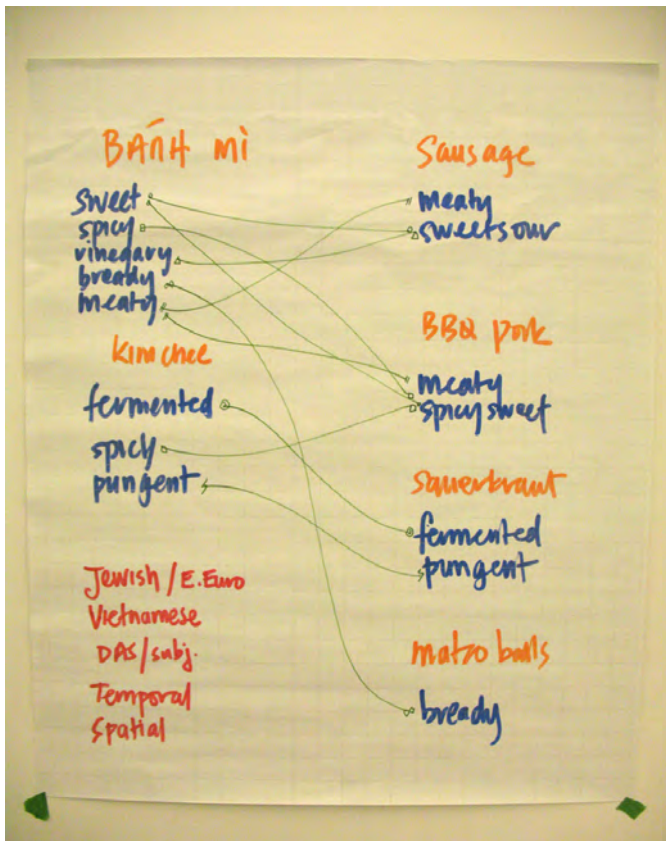 BÁÑH mì
sweet
spicy
vinegary
bready
meaty
kimchee
fermented
spicy
pungent
Jewish / E. Euro
Vietnamese
DAS/subj.
Temporal
Spatial
Sausage
meaty
sweetsour
BBQ pork
meaty
spicysweet
Sauerkraut
fermented
pungent
matzo balls
bready